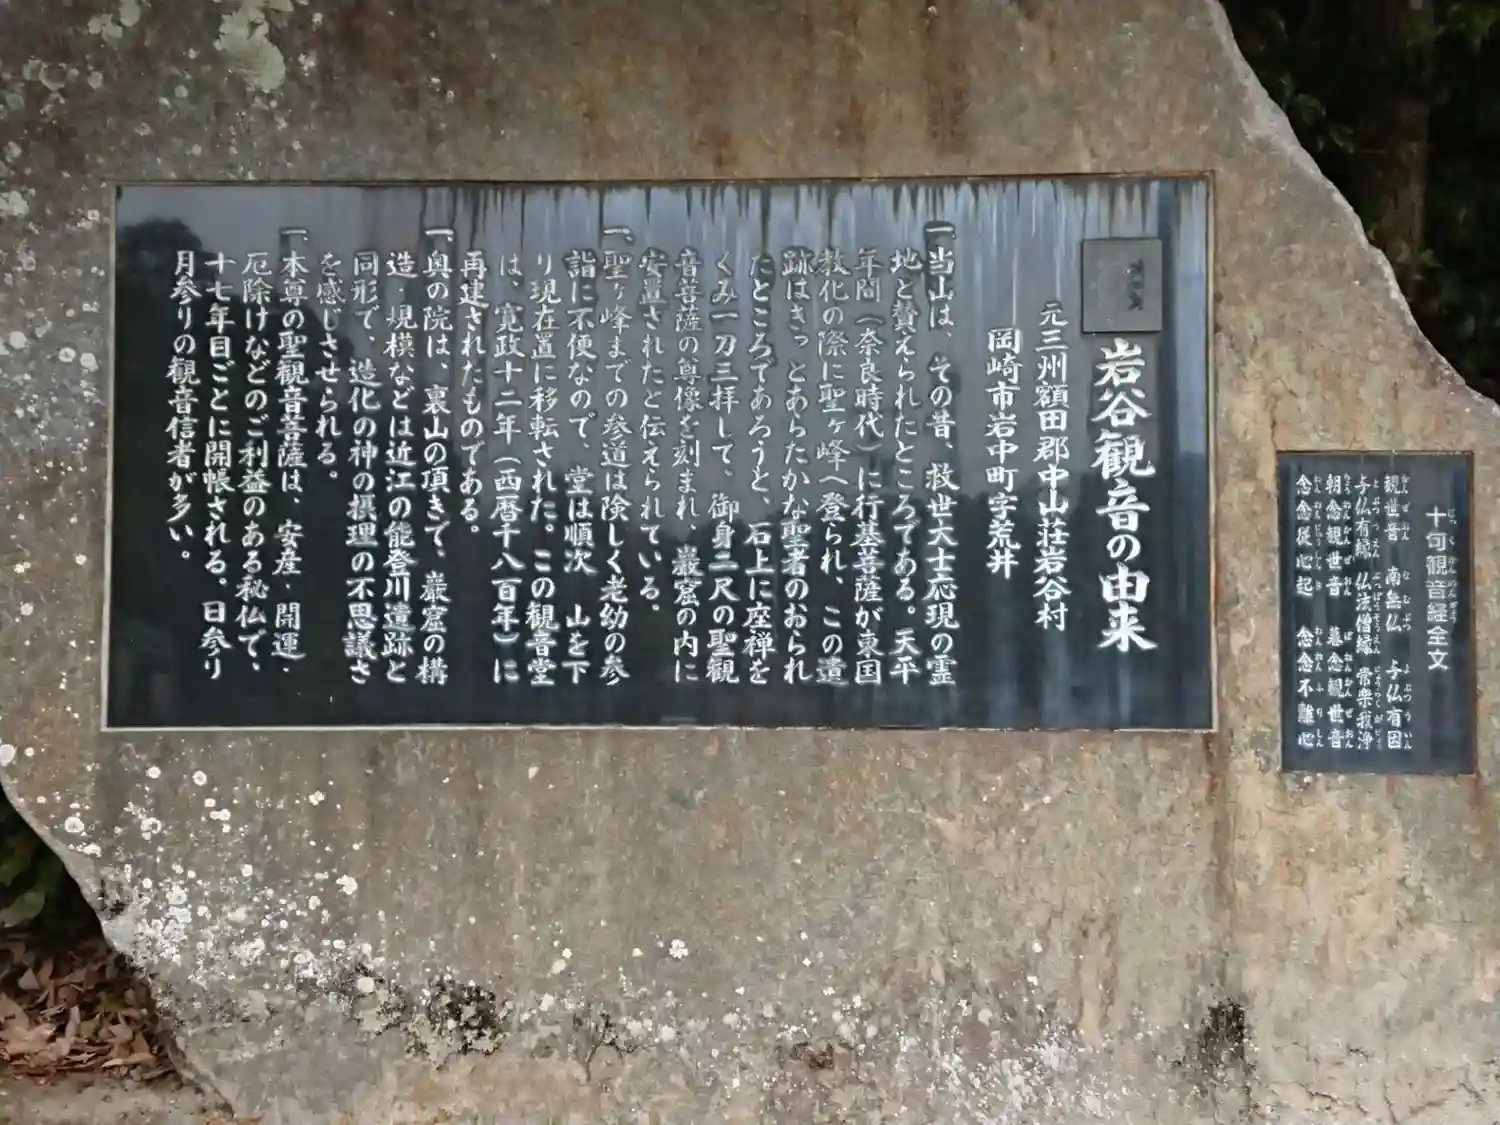 岩谷観音の由来
元三州額田郡中山荘岩谷村
岡崎市岩中町字荒井
一、当山は、その昔、救世大士応現の霊
地と賛えられたところである。天平
年間（奈良時代）に行基菩薩が東国
教化の際に聖ヶ峰へ登られ、この遺
跡はきっとあらたかな聖者のおられ
たところであろうと、石上に座禅を
くみ一刀三拝して、御身二尺の聖観
音菩薩の尊像を刻まれ、巌窟の内に
安置されたと伝えられている。
一、聖ヶ峰までの参道は険しく老幼の参
詣に不便なので、堂は順次 山を下
り現在置に移転された。この観音堂
は、寛政十二年（西暦千八百年）に
再建されたものである。
一、奥の院は、裏山の頂きで、巌窟の構
造・規模などは近江の能登川遺跡と
同形で、造化の神の摂理の不思議さ
を感じさせられる。
一、本尊の聖観音菩薩は、安産・開運・
厄除けなどのご利益のある秘仏で、
十七年目ごとに開帳される。日参り
月参りの観音信者が多い。
十句観音経全文
観世音 南無仏 与仏有因
与仏有縁 仏法僧縁 常楽我浄
朝念観世音 暮念観世音
念念従心起 念念不離心